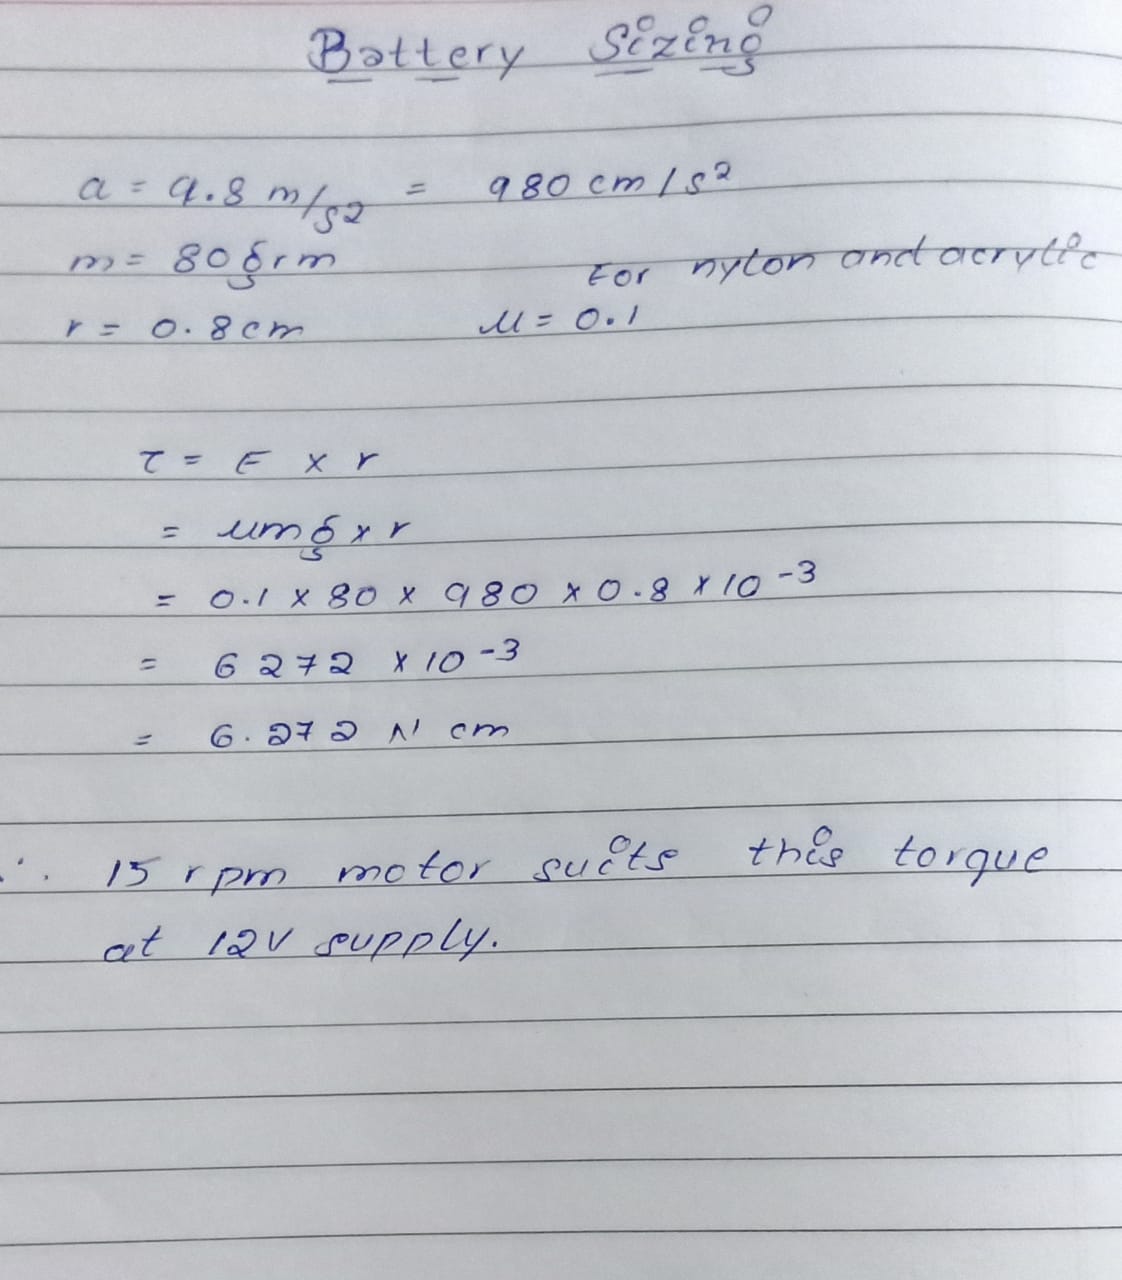 Battery Sizing
a = 9.8 m/s2 = 980 cm/s²
m = 80grm
For nylon and acrylic
r = 0.8cm μ = 0.1
τ = F × r
= μmg × r
= 0.1 × 80 × 980 × 0.8 × 10⁻³
= 6272 × 10⁻³
= 6.272 N cm
∴ 15 rpm motor suits this torque
at 12V supply.